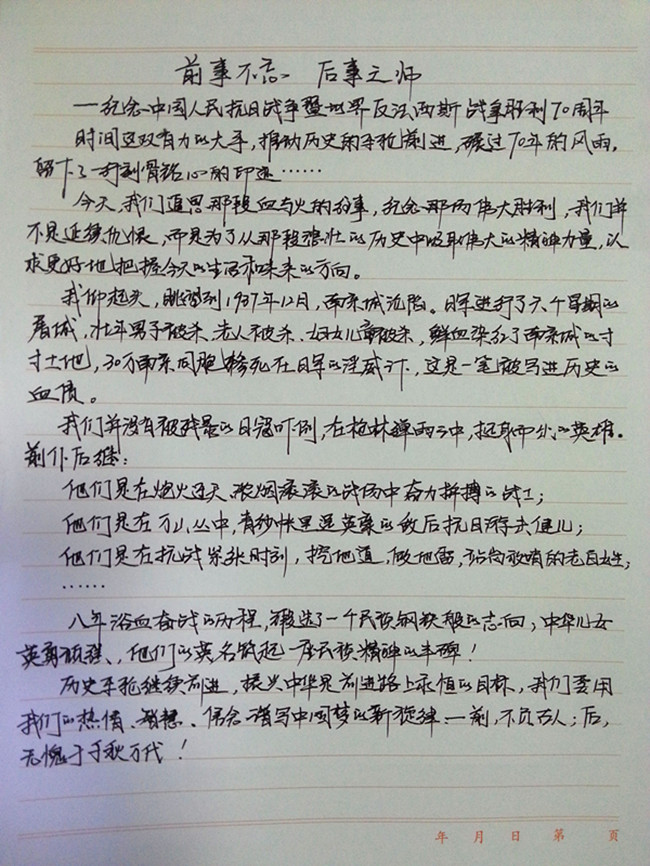 前事不忘 后事之师
—纪念中国人民抗日战争暨世界反法西斯战争胜利70周年
时间这双有力的大手，推动历史的车轮前进，碾过70年的风雨，
留下了一行刻骨铭心的印迹……
今天，我们追思那段血与火的往事，纪念那份伟大胜利，我们并
不是延续仇恨，而是为了从那段悲壮的历史中吸取伟大的精神力量，以
求更好地把握今天的生活和未来的方向。
我仰起头，眺望到1937年12月，南京城沦陷。日军进行了六个星期的
屠城，壮年男子被杀、老人被杀、妇女儿童被杀，鲜血染红了南京城的寸
寸土地，30万南京同胞惨死在日军的淫威下，这是一笔被写进历史的
血债。
我们并没有被残暴的日寇吓倒，在枪林弹雨之中，挺身而出的英雄。
前仆后继：
他们是在炮火连天、浓烟滚滚的战场中奋力拼搏的战士；
他们是在万山丛中，青纱帐里逞英豪的敌后抗日游击健儿；
他们是在抗战紧张时刻，挖地道，做地雷，站岗放哨的老百姓；
……
八年浴血奋战的历程，锻造了一个民族钢铁般的志向；中华儿女
英勇顽强、他们的英名筑起一座民族精神的丰碑！
历史车轮继续前进，振兴中华是前进路上永恒的目标，我们要用
我们的热情、智慧、信念谱写中国梦的新旋律—前，不负古人；后，
无愧于千秋万代！
年 月 日 第 页